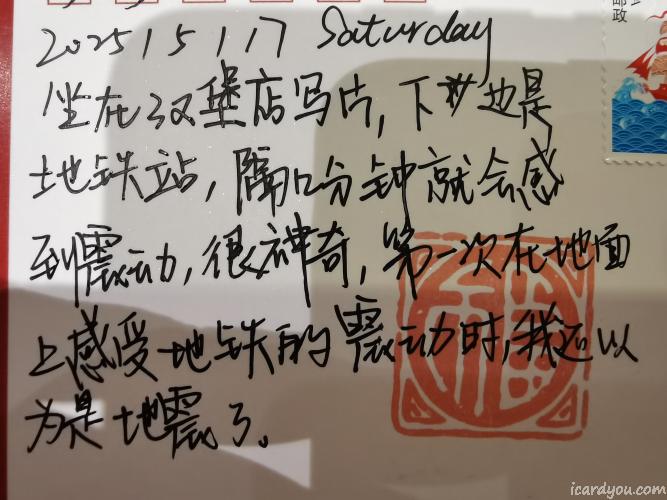 邮政
2025/5/17 Saturday
坐在汉堡店写片,下边是
地铁站,隔几分钟就会感
到震动,很神奇,第一次在地面
上感受地铁的震动时,我还以
为是地震了。
福
icardyou.com